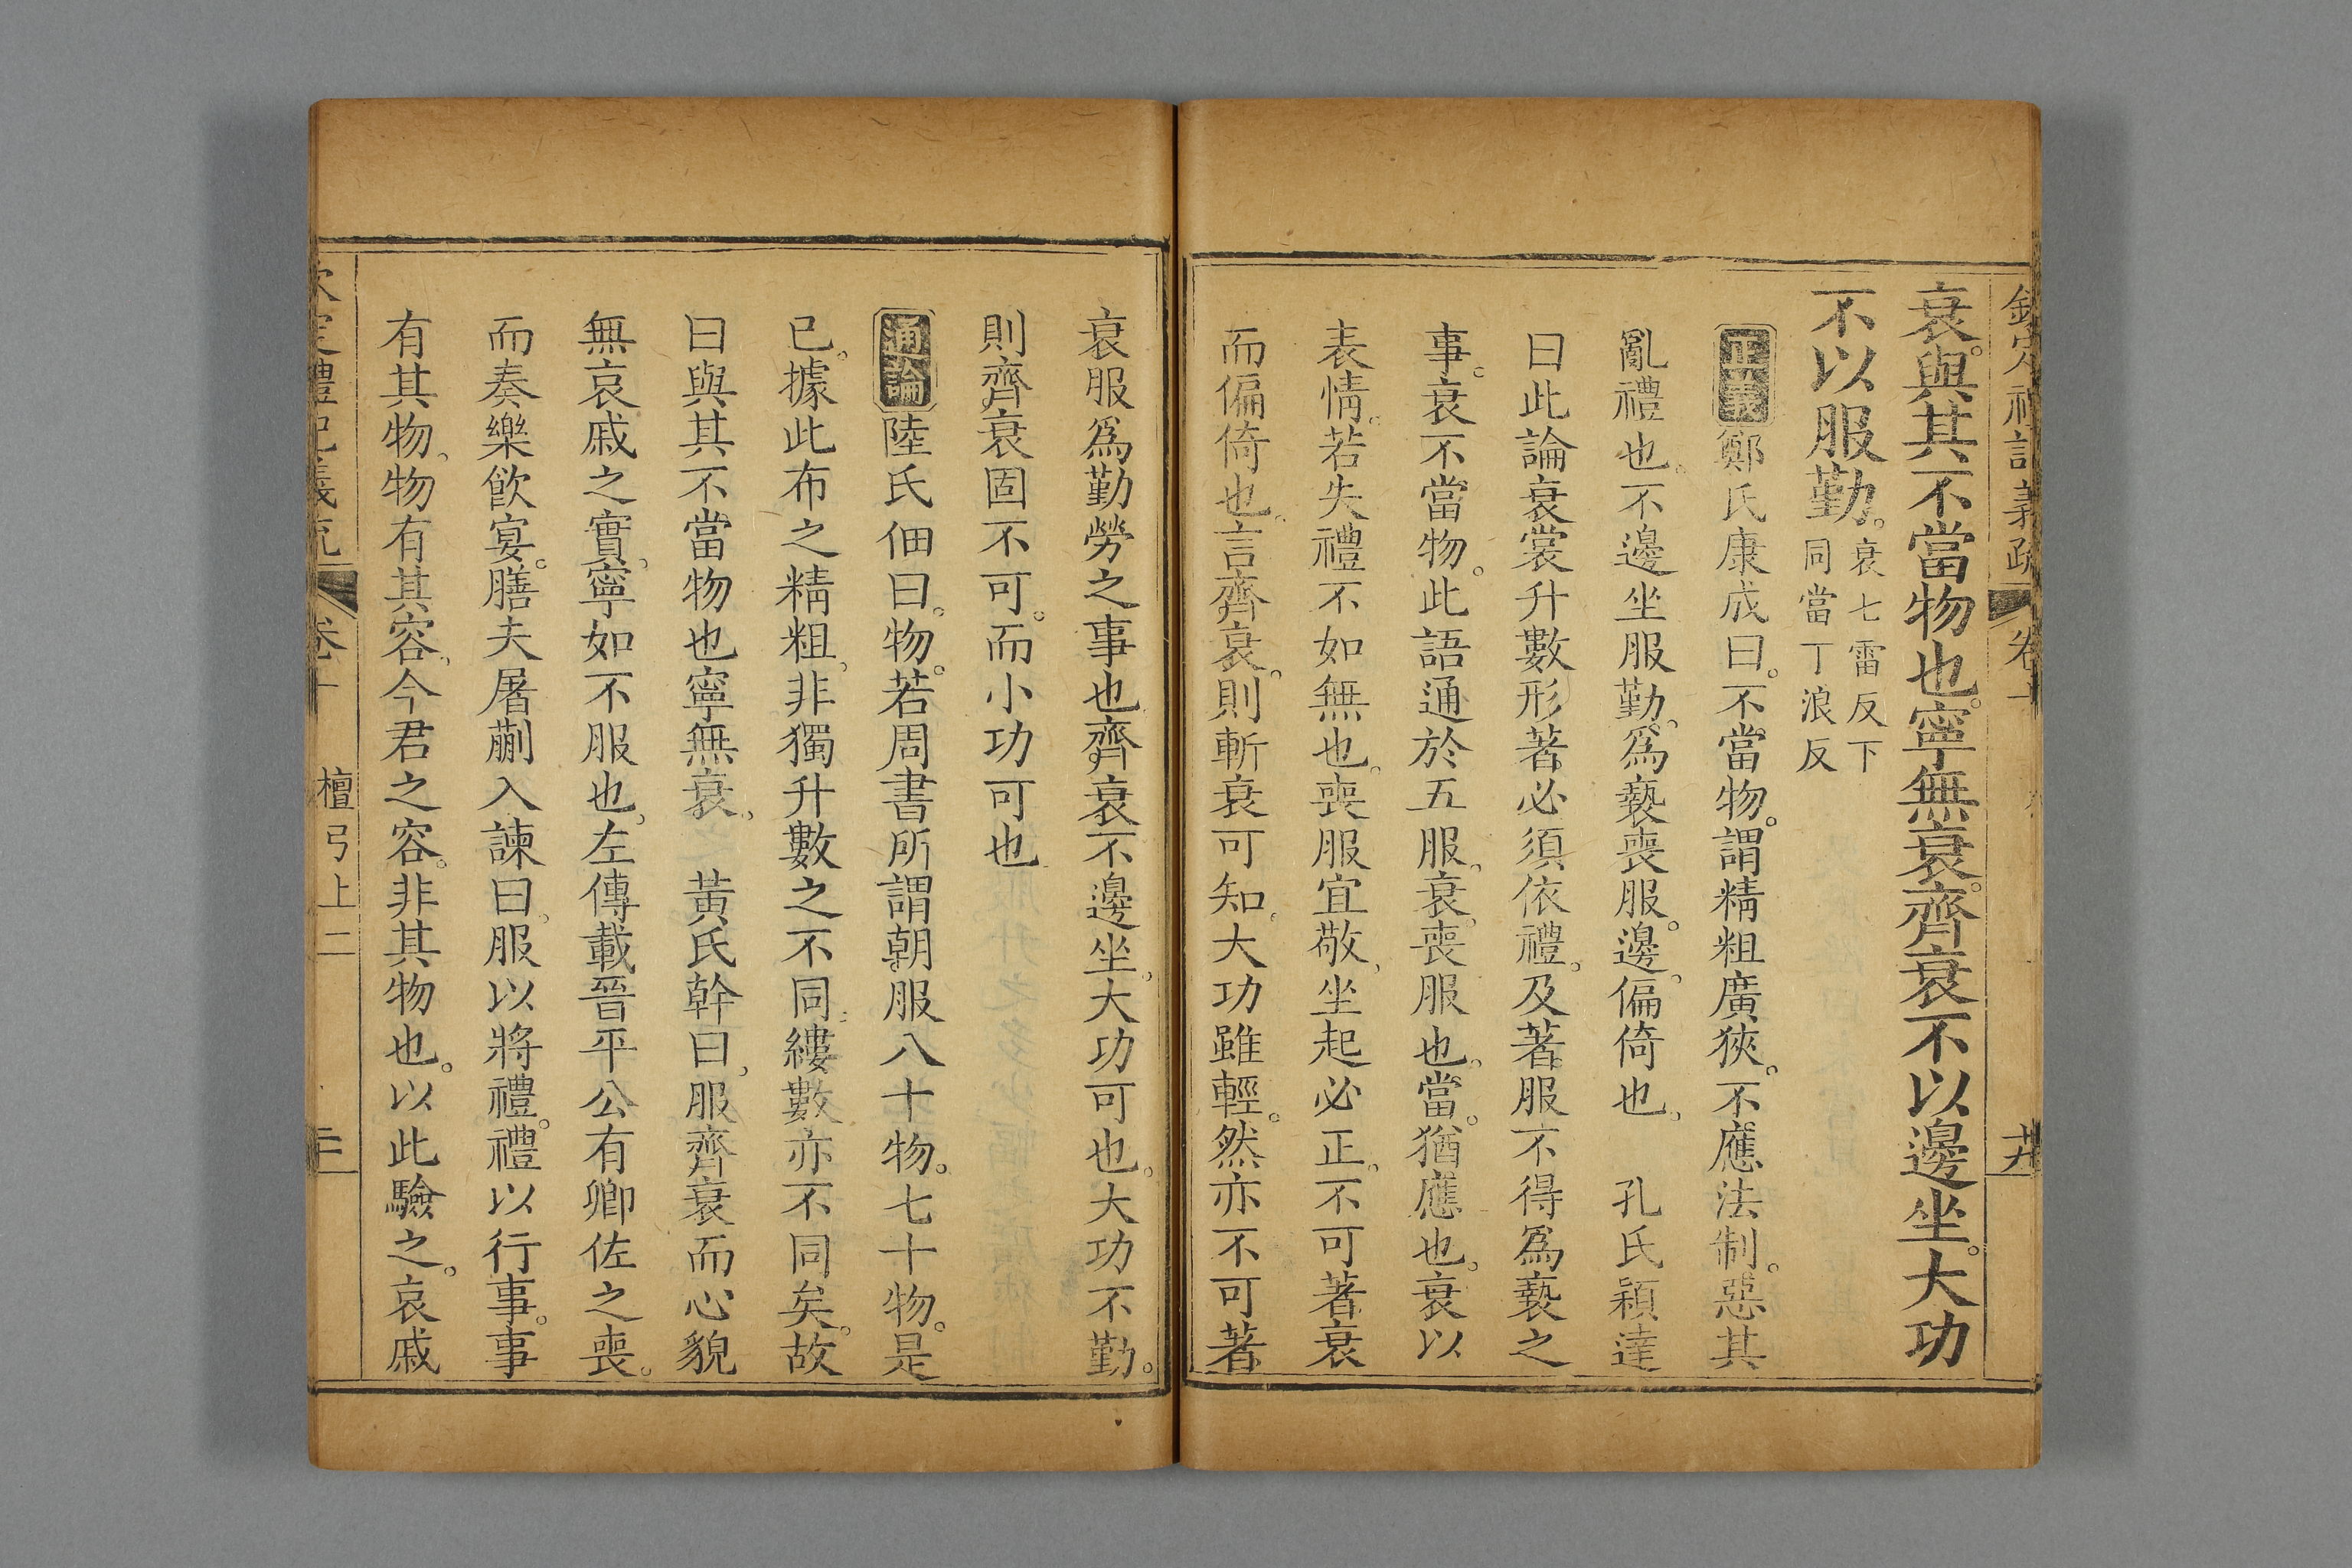 欽定禮記義疏 卷十 廾
衰。與其不當物也。寧無衰。齊衰不以邊坐。大功
不以服勤。衰七雷反下
同當丁浪反
正義鄭氏康成曰。不當物。謂精粗廣狹。不應法制。惡其
亂禮也。不邊坐服勤。爲褻喪服。邊。偏倚也。 孔氏穎達
曰此論衰裳升數形著必須依禮。及著服不得爲褻之
事。衰不當物。此語通於五服。衰。喪服也。當。猶應也。衰以
表情。若失禮不如無也。喪服宜敬。坐起必正。不可著衰
而偏倚也。言齊衰。則斬衰可知。大功雖輕。然亦不可著
衰服爲勤勞之事也齊衰不邊坐。大功可也。大功不勤。
則齊衰固不可。而小功可也
通論陸氏佃曰。物。若周書所謂朝服八十物。七十物。是
已。據此布之精粗。非獨升數之不同。縷數亦不同矣。故
曰與其不當物也寧無衰。 黃氏幹曰。服齊衰而心貌
無哀戚之實。寧如不服也。左傳載晉平公有卿佐之喪。
而奏樂飮宴。膳夫屠蒯入諫曰。服以將禮。禮以行事。事
有其物。物有其容。今君之容。非其物也。以此驗之。哀戚
欽定禮記義疏 卷十 檀弓上二